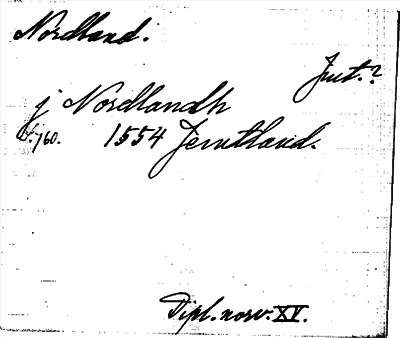 Nordland.
Jmt.?
j Nordlandh
s. 760. 1554 Jemtland.
Dipl. norv. XV.